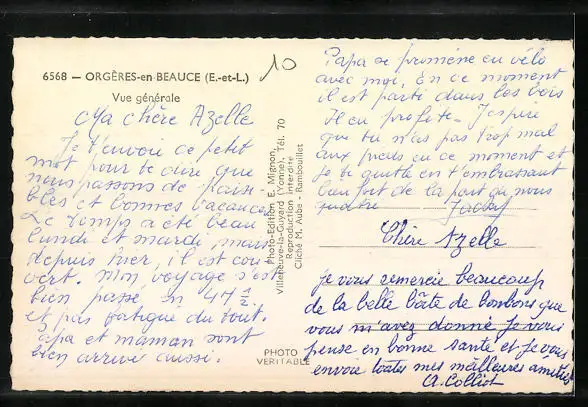 6568 — ORGÈRES-en-BEAUCE (E.-et-L.)
Vue générale
10
Ma chère Azelle
Je t'envoie ce petit
mot pour te dire que
nous passons de plaisi-
bles et bonnes vacances
Le temps a été beau
lundi et mardi, mais
depuis hier, il est cou-
vert. Mon voyage s'est
bien passé en 4H ½
et pas fatigué du tout.
Papa et maman sont
bien arrivé aussi.
Photo-Edition E. Mignon,
Villeneuve-la-Guyard (Yonne), Tél. 70
Reproduction interdite
Cliché M. Aube - Rambouillet
PHOTO
VERITABLE
Papa se promène en vélo
avec moi, En ce moment
il est parti dans les bois
Il en profite. J'espère
que tu n'as pas trop mal
aux pieds en ce moment et
je te quitte en t'embrassant
bien fort de la part de nous
quatre
Chère Azelle
je vous remercie beaucoup
de la belle boîte de bonbons que
vous m'avez donné je vous
pense en bonne santé et je vous
envoie toutes mes meilleures amitiés
A. Colliot